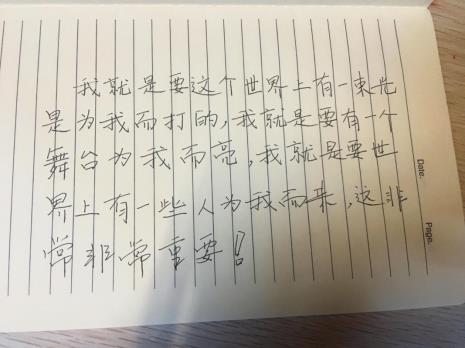 我就是要这个世界上有一束光
是为我而打的,我就是要有一个
舞台为我而亮,我就是要世
界上有一些人为我而来,这非
常非常重要!
Date.
Page.